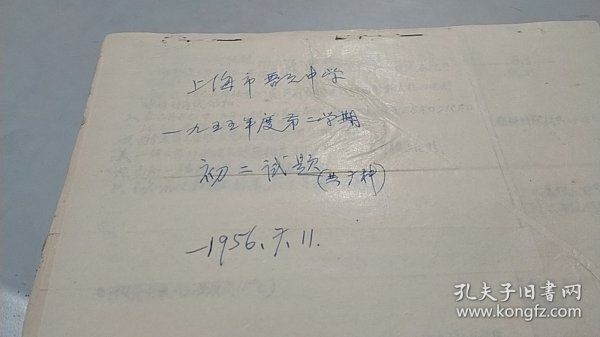 上海市晋元中学
一九五五年度第二学期
初二试题(共广种)
—1956.7.11.
孔夫子旧书网
www.kongfz.com